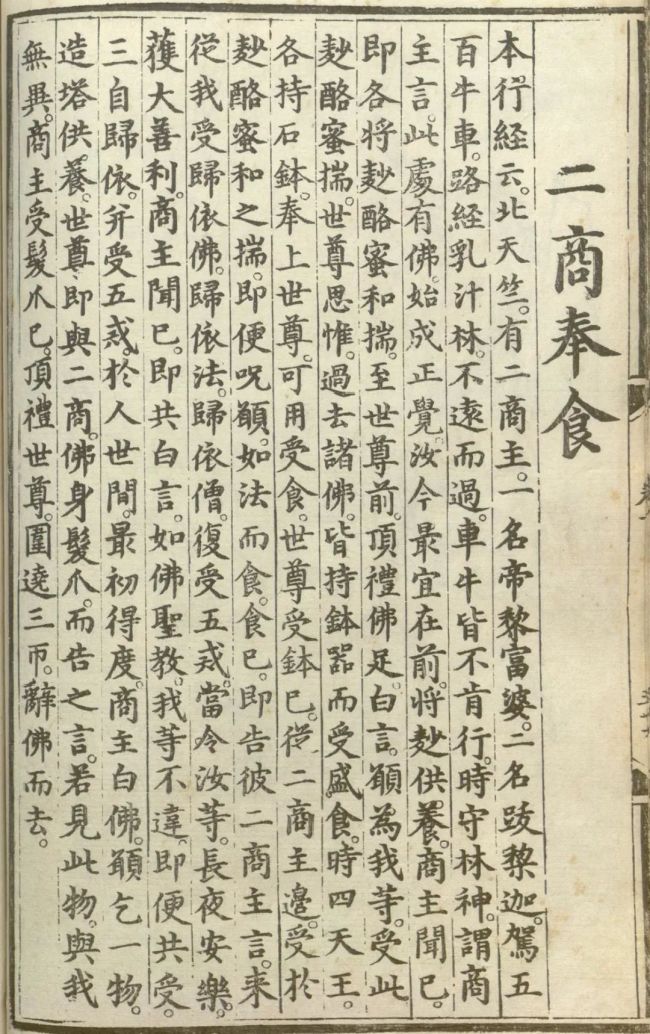 二商奉食
本行経云。北天竺。有二商主。一名帝黎富婆。二名跋黎迦。駕五
百牛車。路経乳汁林。不遠而過。車牛皆不肯行。時守林神。謂商
主言。此處有佛。始成正覺。汝今最宜在前。將麨供養。商主聞已。
即各將麨酪蜜和揣。至世尊前。頂禮佛足。白言。願為我等。受此
麨酪蜜揣。世尊思惟。過去諸佛。皆持鉢器而受盛食。時四天王。
各持石鉢。奉上世尊。可用受食。世尊受鉢已。從二商主邊。受於
麨酪蜜和之揣。即便呪願。如法而食。食已。即告彼二商主言。来
従我受歸依佛。歸依法。歸依僧。復受五戒。當令汝等。長夜安樂。
獲大善利。商主聞已。即共白言。如佛聖教。我等不違。即便共受。
三自歸依。并受五戒。於人世間。最初得度。商主白佛。願乞一物。
造塔供養。世尊即與二商。佛身髮爪。而告之言。若見此物。與我
無異。商主受髮爪已。頂禮世尊。圍遶三帀。辭佛而去。